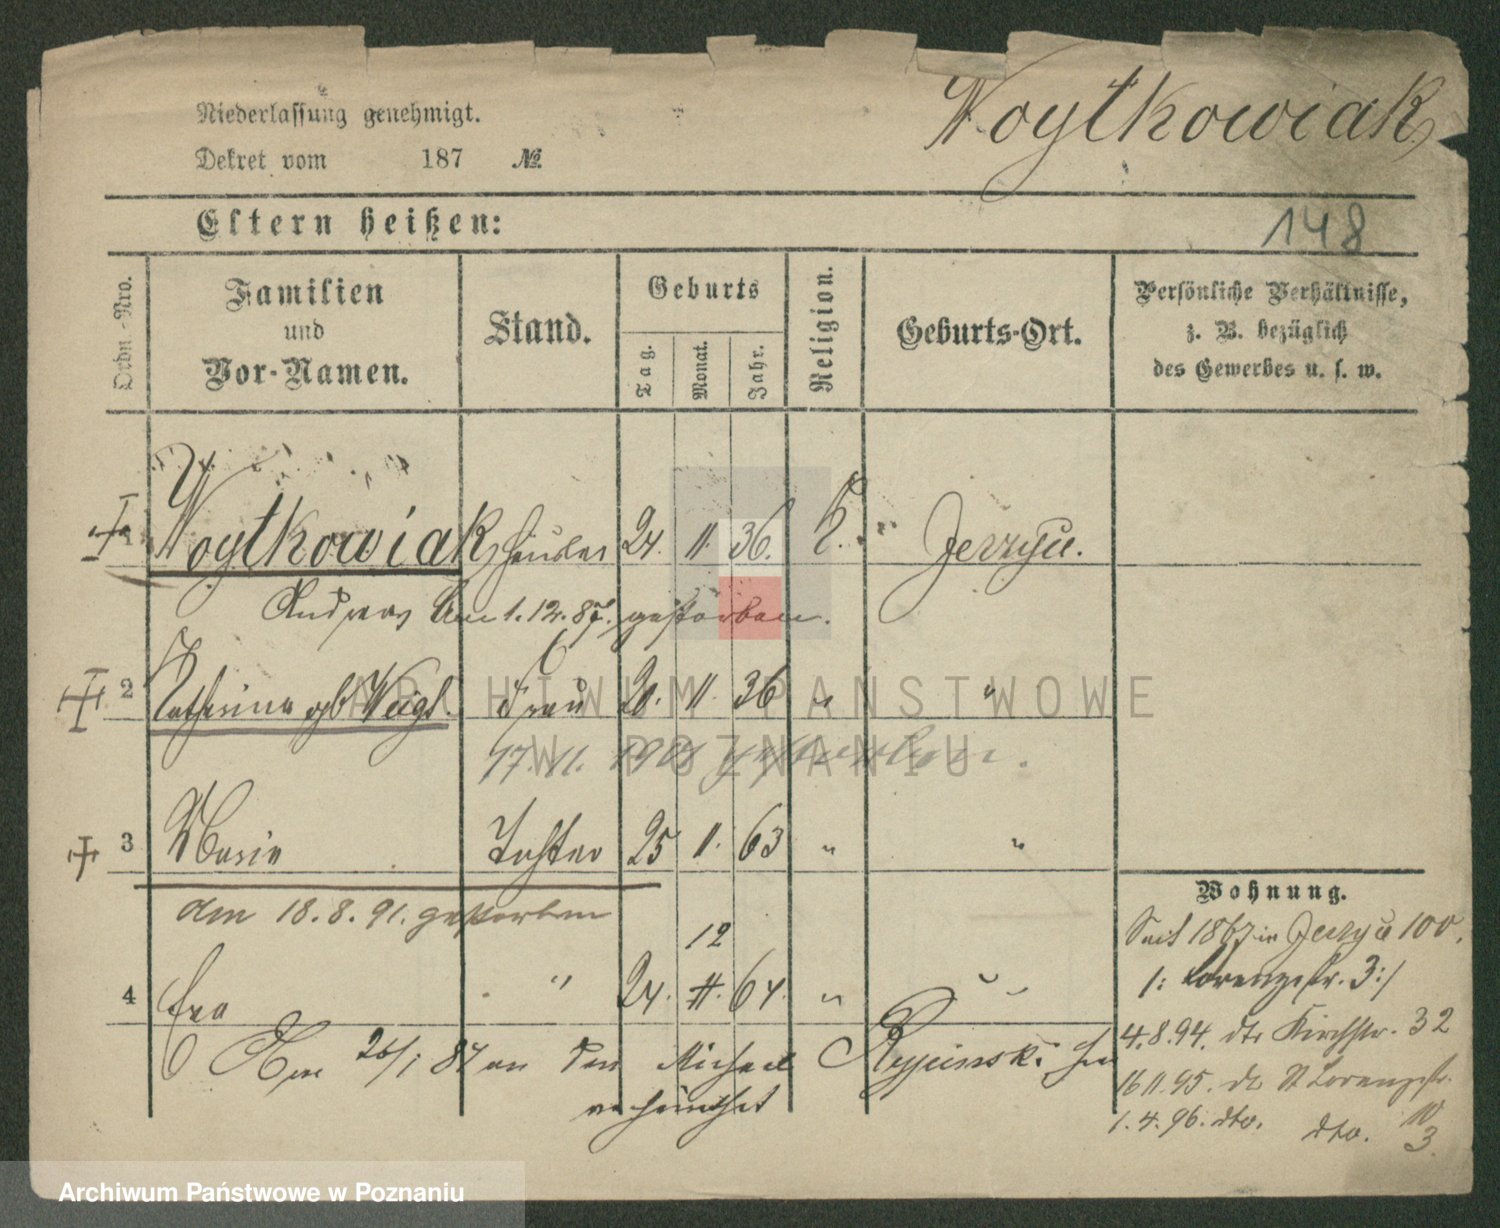 Niederlassung genehmigt.
Woytkowiak
Dekret vom 187 №
Eltern heißen:
148
Ordn.-Nro.
Familien
und
Vor-Namen.
Stand.
Geburts
Tag.
Monat.
Jahr.
Religion.
Geburts-Ort.
Persönliche Verhältnisse,
z. B. bezüglich
des Gewerbes u. s. w.
1 Woytkowiak Häusler 24. 11. 36. k. Jerzyce.
Andreas Am 1.12.87. gestorben.
2 Katharina geb Weigl. Frau 20. 11. 36 " "
17. 11. gestorben.
3 Maria Tochter 25 11. 63 " "
den 18.8.91. gestorben
12
4 Eva " 24. 11. 64. " "
Am 26/1 84 an den Michael
verheirathet
Wohnung.
Seit 1867 in Jerzyce 100.
/: Lorenzstr. 3:/
4.8.94. dto Kirchstr. 32
16 11.95. do St Lorenzstr.
10
1.4.96. dto. dto. 3.
ARCHIWUM PAŃSTWOWE
W POZNANIU
Archiwum Państwowe w Poznaniu